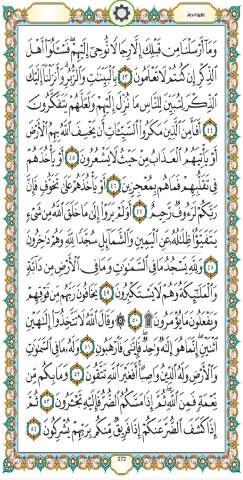 An-Nahl
وَمَآ أَرْسَلْنَا مِن قَبْلِكَ إِلَّا رِجَالًا نُّوحِىٓ إِلَيْهِمْ فَسْـَٔلُوٓا۟ أَهْلَ
ٱلذِّكْرِ إِن كُنتُمْ لَا تَعْلَمُونَ ٤٣ بِٱلْبَيِّنَـٰتِ وَٱلزُّبُرِ وَأَنزَلْنَآ إِلَيْكَ
ٱلذِّكْرَ لِتُبَيِّنَ لِلنَّاسِ مَا نُزِّلَ إِلَيْهِمْ وَلَعَلَّهُمْ يَتَفَكَّرُونَ
٤٤ أَفَأَمِنَ ٱلَّذِينَ مَكَرُوا۟ ٱلسَّيِّـَٔاتِ أَن يَخْسِفَ ٱللَّهُ بِهِمُ ٱلْأَرْضَ
أَوْ يَأْتِيَهُمُ ٱلْعَذَابُ مِنْ حَيْثُ لَا يَشْعُرُونَ ٤٥ أَوْ يَأْخُذَهُمْ
فِى تَقَلُّبِهِمْ فَمَا هُم بِمُعْجِزِينَ ٤٦ أَوْ يَأْخُذَهُمْ عَلَىٰ تَخَوُّفٍ فَإِنَّ
رَبَّكُمْ لَرَءُوفٌ رَّحِيمٌ ٤٧ أَوَلَمْ يَرَوْا۟ إِلَىٰ مَا خَلَقَ ٱللَّهُ مِن شَىْءٍ
يَتَفَيَّؤُا۟ ظِلَـٰلُهُۥ عَنِ ٱلْيَمِينِ وَٱلشَّمَآئِلِ سُجَّدًا لِّلَّهِ وَهُمْ دَٰخِرُونَ
٤٨ وَلِلَّهِ يَسْجُدُ مَا فِى ٱلسَّمَـٰوَٰتِ وَمَا فِى ٱلْأَرْضِ مِن دَآبَّةٍ
وَٱلْمَلَـٰٓئِكَةُ وَهُمْ لَا يَسْتَكْبِرُونَ ٤٩ يَخَافُونَ رَبَّهُم مِّن فَوْقِهِمْ
وَيَفْعَلُونَ مَا يُؤْمَرُونَ ۩ ٥٠ وَقَالَ ٱللَّهُ لَا تَتَّخِذُوٓا۟ إِلَـٰهَيْنِ
ٱثْنَيْنِ إِنَّمَا هُوَ إِلَـٰهٌ وَٰحِدٌ فَإِيَّـٰىَ فَٱرْهَبُونِ ٥١ وَلَهُۥ مَا فِى ٱلسَّمَـٰوَٰتِ
وَٱلْأَرْضِ وَلَهُ ٱلدِّينُ وَاصِبًا أَفَغَيْرَ ٱللَّهِ تَتَّقُونَ ٥٢ وَمَا بِكُم مِّن
نِّعْمَةٍ فَمِنَ ٱللَّهِ ثُمَّ إِذَا مَسَّكُمُ ٱلضُّرُّ فَإِلَيْهِ تَجْـَٔرُونَ ٥٣ ثُمَّ
إِذَا كَشَفَ ٱلضُّرَّ عَنكُمْ إِذَا فَرِيقٌ مِّنكُم بِرَبِّهِمْ يُشْرِكُونَ ٥٤
272